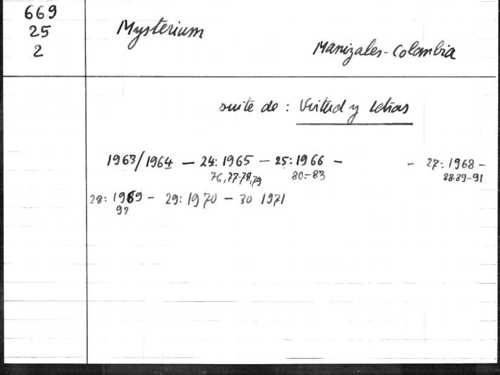 669
25
2
Mysterium
Manizales - Colombia
suite de : Virtud y Letras
1963/1964 — 24: 1965 — 25: 1966 — - 27: 1968 —
76, 77-78, 79 80-83 88-89-91
28: 1969 — 29: 1970 — 30 1971
92